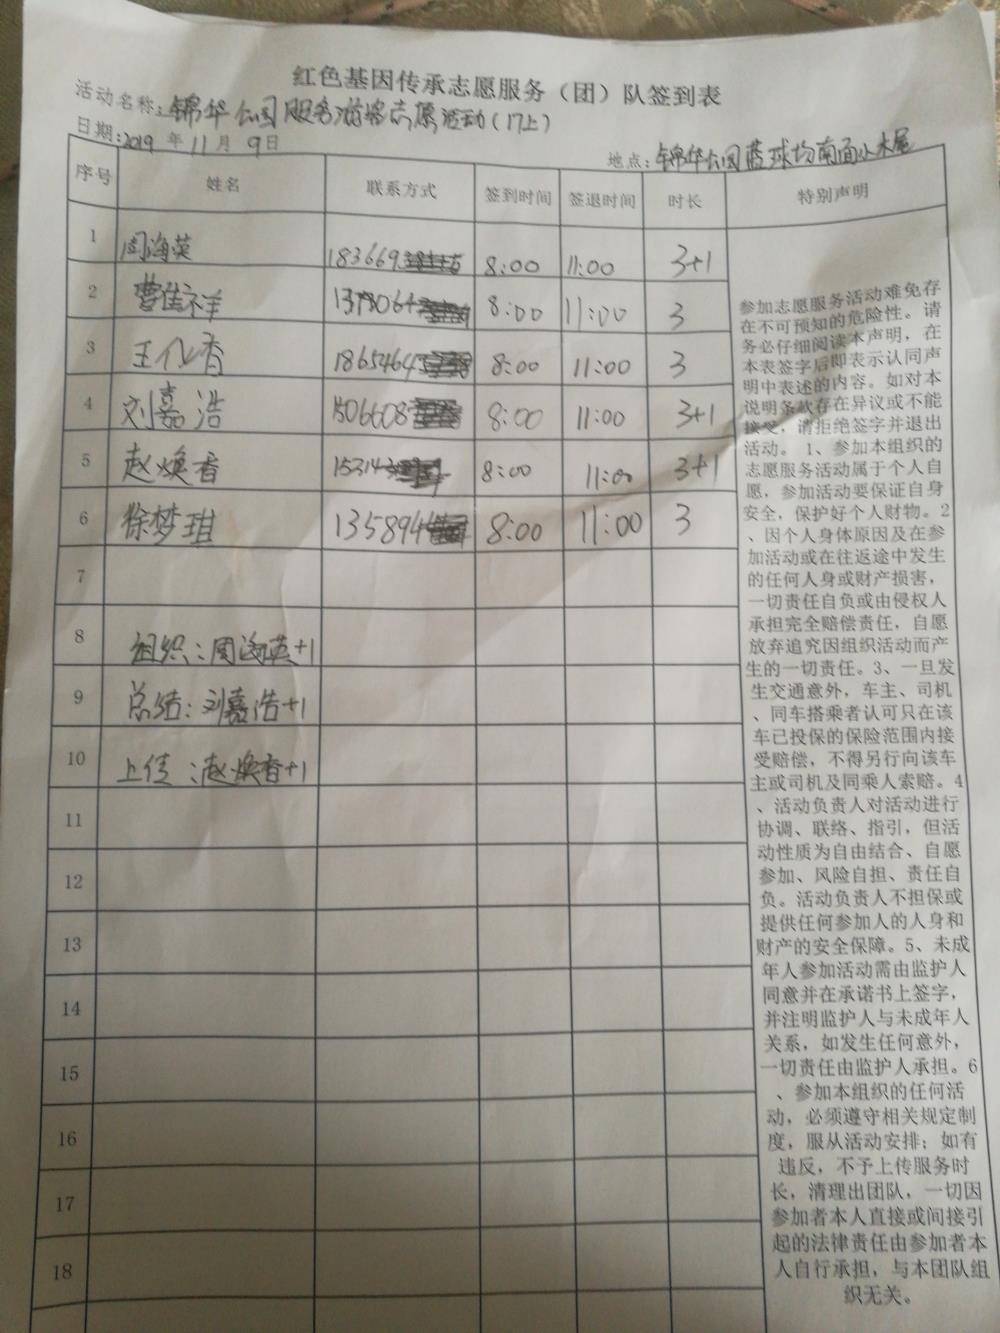 红色基因传承志愿服务（团）队签到表
活动名称：锦华公园服务游客志愿活动（17上）
日期：2019年11月9日 地点：锦华公园蓝球场南面小木屋
序号 姓名 联系方式 签到时间 签退时间 时长 特别声明
1 周海英 183669 8:00 11:00 3+1
2 曹佳祥 1378064 8:00 11:00 3
3 王化香 1865464 8:00 11:00 3
4 刘嘉浩 1506608 8:00 11:00 3+1
5 赵焕香 15314 8:00 11:00 3+1
6 徐梦琪 1358944 8:00 11:00 3
7
8 组织：周海英+1
9 总结：刘嘉浩+1
10 上传：赵焕香+1
11
12
13
14
15
16
17
18
参加志愿服务活动难免存
在不可预知的危险性。请
务必仔细阅读本声明，在
本表签字后即表示认同声
明中表述的内容。如对本
说明条款存在异议或不能
接受，请拒绝签字并退出
活动。 1、参加本组织的
志愿服务活动属于个人自
愿，参加活动要保证自身
安全，保护好个人财物。2
、因个人身体原因及在参
加活动或在往返途中发生
的任何人身或财产损害，
一切责任自负或由侵权人
承担完全赔偿责任，自愿
放弃追究因组织活动而产
生的一切责任。3、一旦发
生交通意外，车主、司机
、同车搭乘者认可只在该
车已投保的保险范围内接
受赔偿，不得另行向该车
主或司机及同乘人索赔。4
、活动负责人对活动进行
协调、联络、指引，但活
动性质为自由结合、自愿
参加、风险自担、责任自
负。活动负责人不担保或
提供任何参加人的人身和
财产的安全保障。5、未成
年人参加活动需由监护人
同意并在承诺书上签字，
并注明监护人与未成年人
关系，如发生任何意外，
一切责任由监护人承担。6
、参加本组织的任何活
动，必须遵守相关规定制
度，服从活动安排；如有
违反，不予上传服务时
长，清理出团队，一切因
参加者本人直接或间接引
起的法律责任由参加者本
人自行承担，与本团队组
织无关。